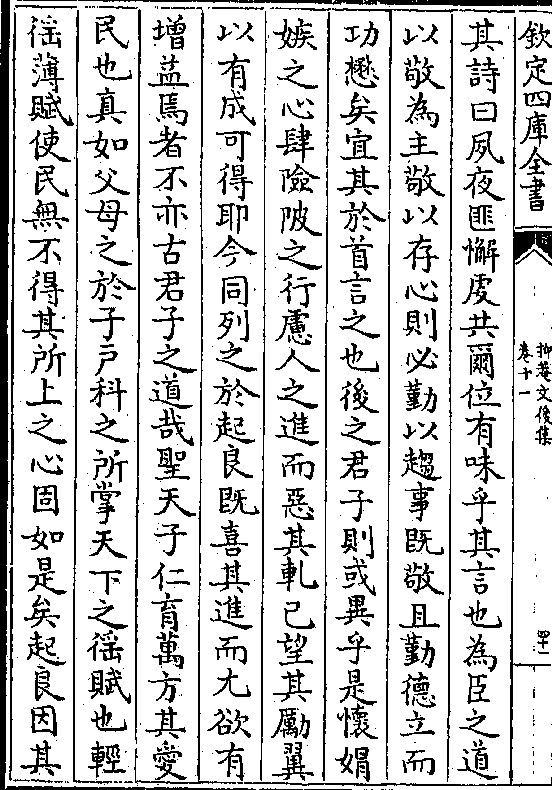 欽定四庫全書
抑菴文後集
卷十一
四十一
其詩曰夙夜匪懈虔共爾位有味乎其言也為臣之道
以敬為主敬以存心則必勤以趨事既敬且勤德立而
功懋矣宜其於首言之也後之君子則或異乎是懷娟
嫉之心肆險陂之行慮人之進而惡其軋己望其勵翼
以有成可得耶今同列之於起良既喜其進而尤欲有
增益焉者不亦古君子之道哉聖天子仁育萬方其愛
民也真如父母之於子戸科之所掌天下之徭賦也輕
徭薄賦使民無不得其所上之心固如是矣起良因其